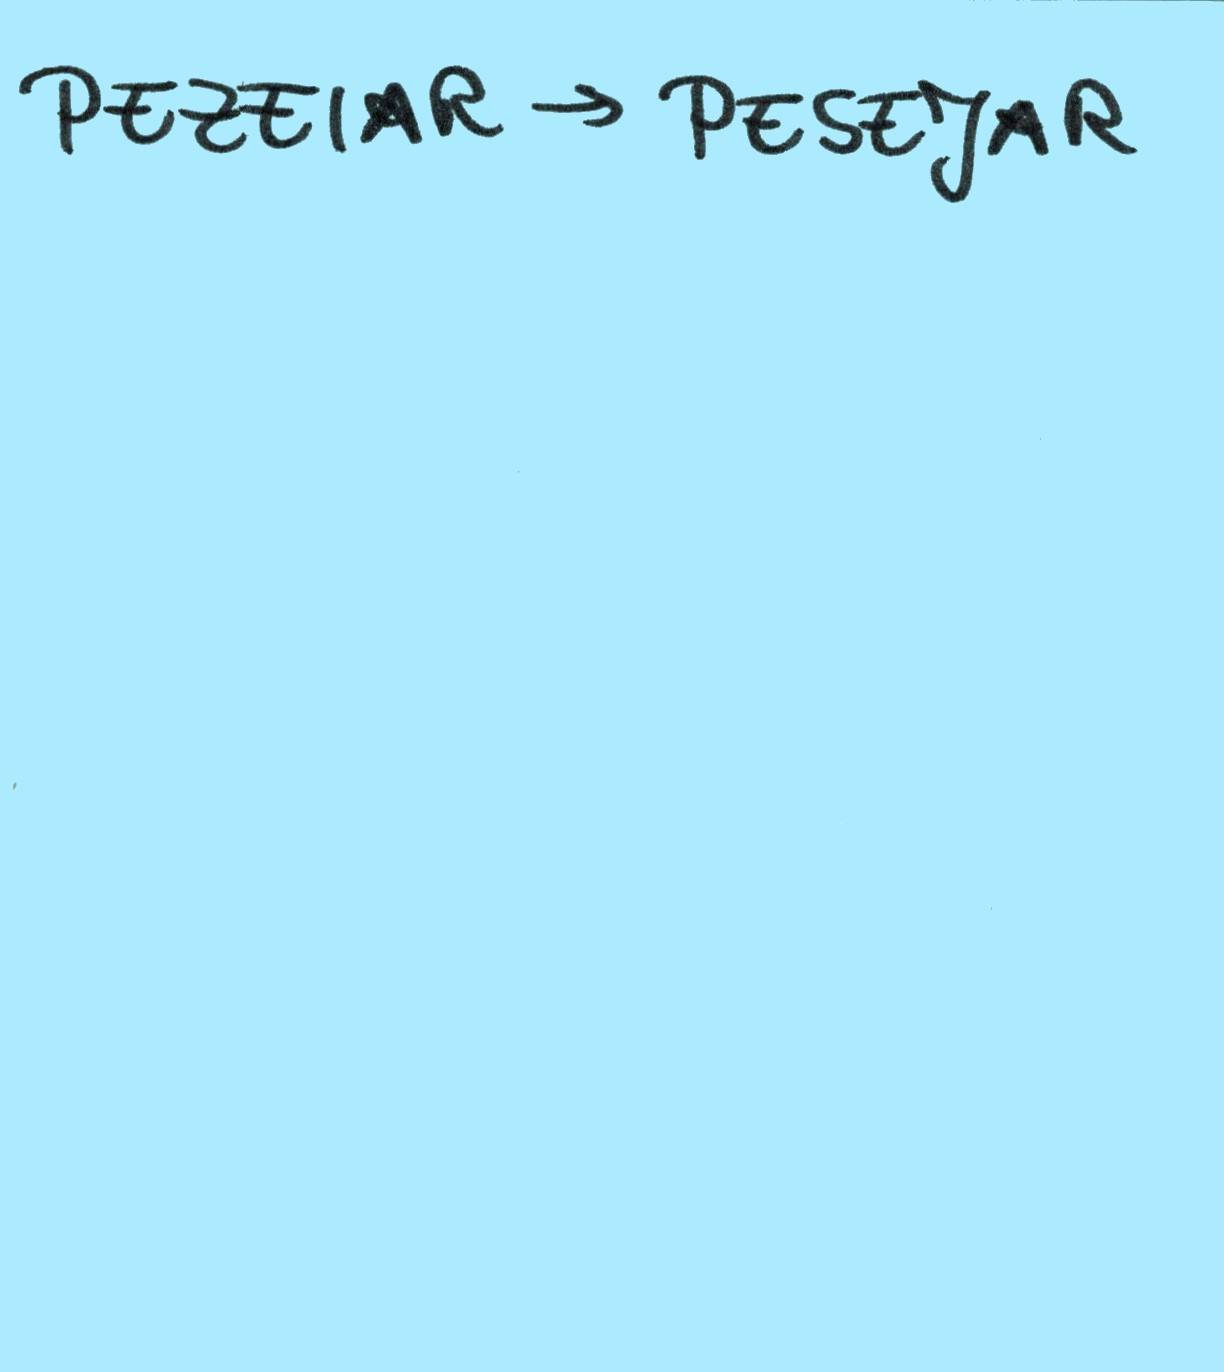 PEZEIAR → PESEJAR